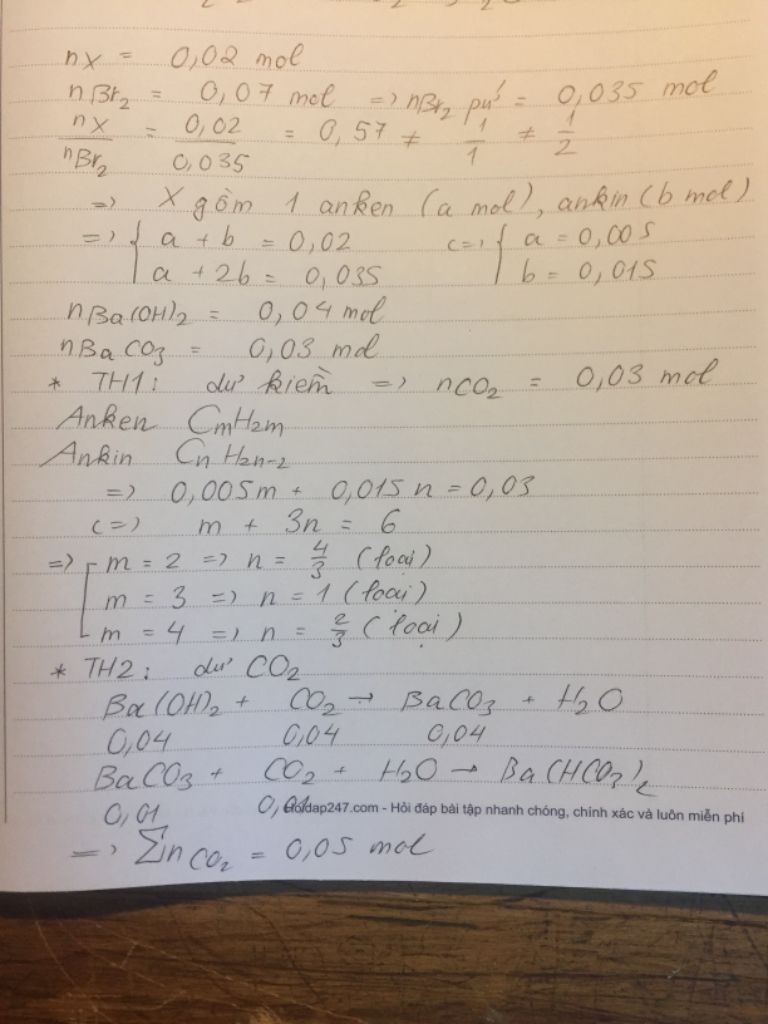 nX = 0,02 mol
nBr2 = 0,07 mol => nBr2 pứ = 0,035 mol
nX / nBr2 = 0,02 / 0,035 = 0,57 ≠ 1/1 ≠ 1/2
=> X gồm 1 anken (a mol), ankin (b mol)
=> { a + b = 0,02 <=> { a = 0,005
a + 2b = 0,035 b = 0,015
nBa(OH)2 = 0,04 mol
nBaCO3 = 0,03 mol
* TH1: dư kiềm => nCO2 = 0,03 mol
Anken CmH2m
Ankin CnH2n-2
=> 0,005m + 0,015n = 0,03
<=> m + 3n = 6
=> [ m = 2 => n = 4/3 (loại)
m = 3 => n = 1 (loại)
m = 4 => n = 2/3 (loại)
* TH2: dư CO2
Ba(OH)2 + CO2 → BaCO3 + H2O
0,04 0,04 0,04
BaCO3 + CO2 + H2O → Ba(HCO3)2
0,01 0,01
Hoidap247.com - Hỏi đáp bài tập nhanh chóng, chính xác và luôn miễn phí
=> ΣnCO2 = 0,05 mol